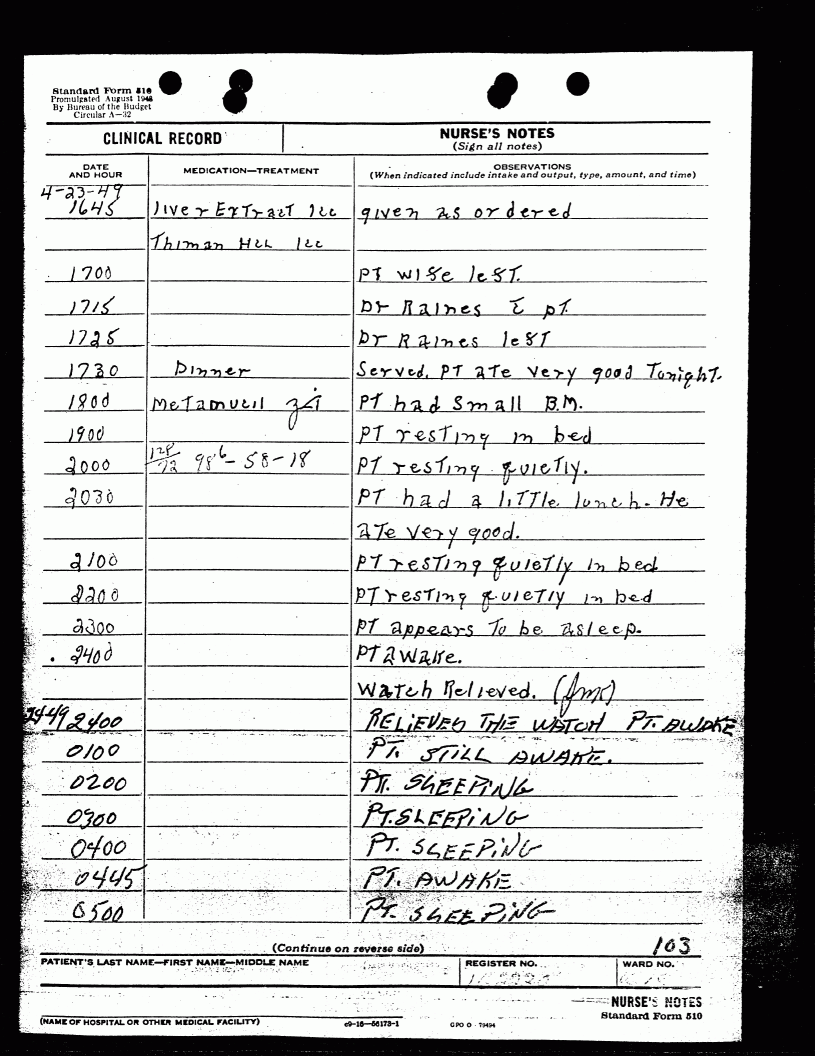 Standard Form 510
Promulgated August 1948
By Bureau of the Budget
Circular A—32
CLINICAL RECORD
NURSE'S NOTES
(Sign all notes)
DATE AND HOUR
MEDICATION—TREATMENT
OBSERVATIONS
(When indicated include intake and output, type, amount, and time)
4-23-49
1645 liver Extract 1cc given as ordered
Thiman HCL 1cc
1700 PT wife left.
1715 Dr Raines c̄ pt.
1725 Dr Raines left
1730 Dinner Served. PT ate very good Tonight.
1800 Metamucil PT had Small B.M.
1900 PT resting in bed
2000 128/72 98⁶-58-18 PT resting quietly.
2030 PT had a little lunch. He
ate very good.
2100 PT resting quietly in bed
2200 PT resting quietly in bed
2300 PT appears To be asleep.
2400 PT awake.
Watch Relieved.
2400 RELIEVED THE WATCH PT. AWAKE
0100 PT. STILL AWAKE.
0200 PT. SLEEPING
0300 PT. SLEEPING
0400 PT. SLEEPING
0445 PT. AWAKE
0500 PT. SLEEPING
(Continue on reverse side) 103
PATIENT'S LAST NAME—FIRST NAME—MIDDLE NAME
REGISTER NO.
WARD NO.
NURSE'S NOTES
Standard Form 510
(NAME OF HOSPITAL OR OTHER MEDICAL FACILITY)
c9-16-56173-1
GPO O - 79494